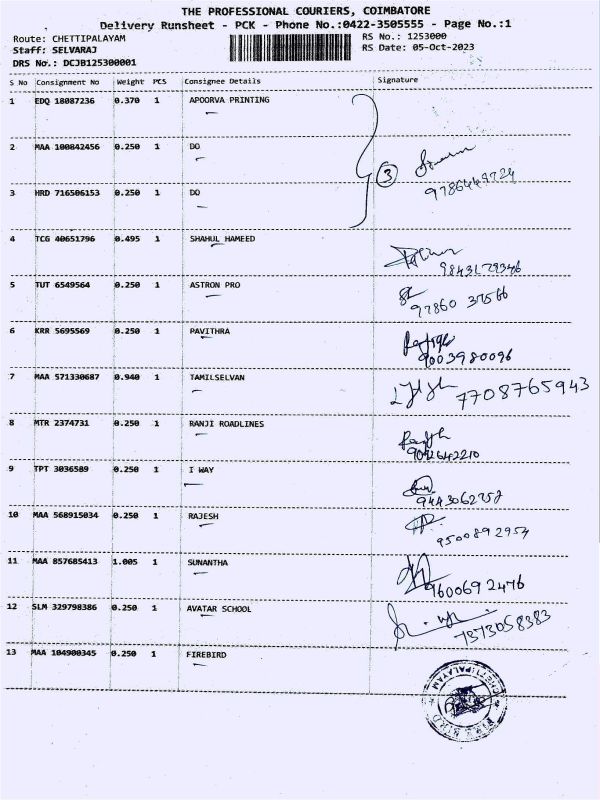 THE PROFESSIONAL COURIERS, COIMBATORE
Delivery Runsheet - PCK - Phone No.:0422-3505555 - Page No.:1
Route: CHETTIPALAYAM
Staff: SELVARAJ
DRS No.: DCJB125300001
RS No.: 1253000
RS Date: 05-Oct-2023
S No Consignment No Weight PCS Consignee Details Signature
1 EDQ 18087236 0.370 1 APOORVA PRINTING
2 MAA 100842456 0.250 1 DO
3
9786449724
3 HRD 716506153 0.250 1 DO
4 TCG 40651796 0.495 1 SHAHUL HAMEED
9843179346
5 TUT 6549564 0.250 1 ASTRON PRO
97860 37566
6 KRR 5695569 0.250 1 PAVITHRA
9003980096
7 MAA 571330687 0.940 1 TAMILSELVAN
7708765943
8 MTR 2374731 0.250 1 RANJI ROADLINES
9 TPT 3036589 0.250 1 I WAY
9443062758
10 MAA 568915034 0.250 1 RAJESH
9500892954
11 MAA 857685413 1.005 1 SUNANTHA
9600692476
12 SLM 329798386 0.250 1 AVATAR SCHOOL
7373058383
13 MAA 104900345 0.250 1 FIREBIRD
CHETTIPALAYAM